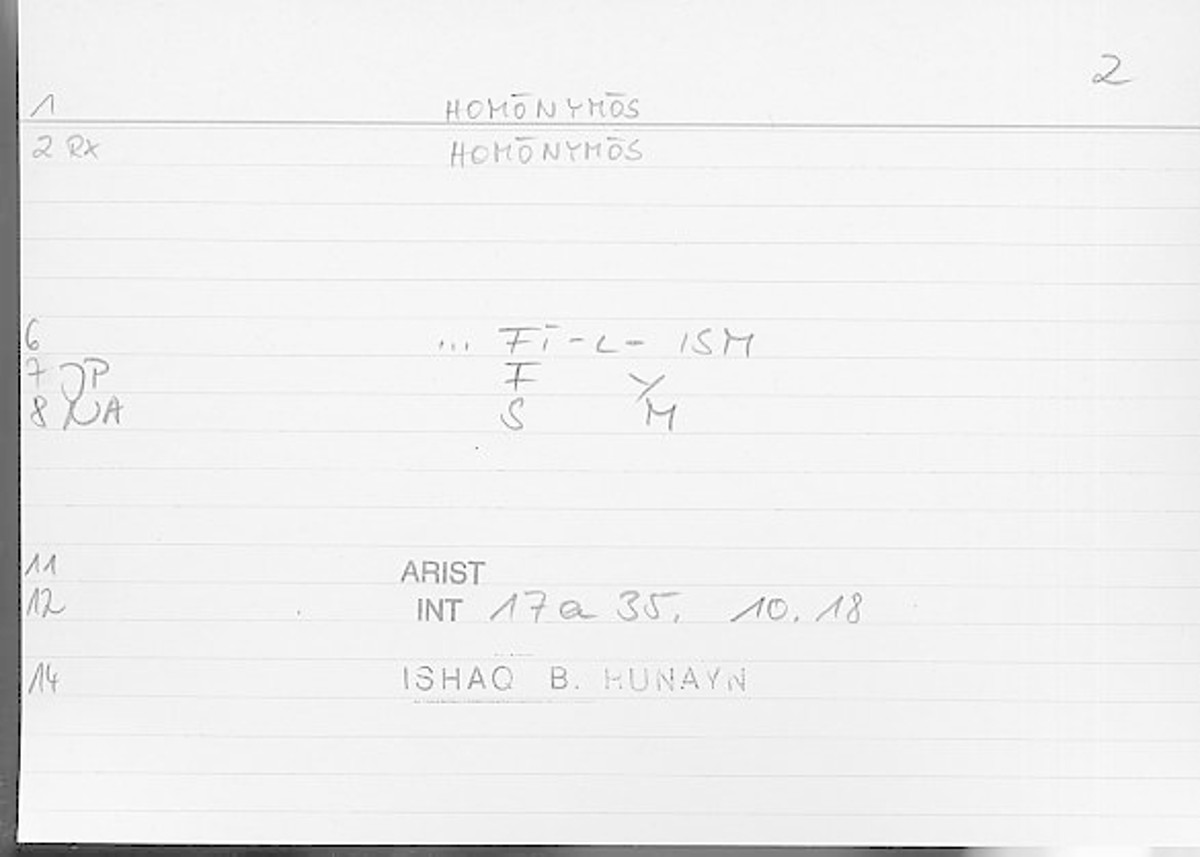 2
1 HOMŌNYMŌS
2 RX HOMŌNYMŌS
6 ... FĪ-L- ISM
7 P F Y
8 A S M
11 ARIST
12 INT 17a 35, 10.18
14 ISHAQ B. HUNAYN